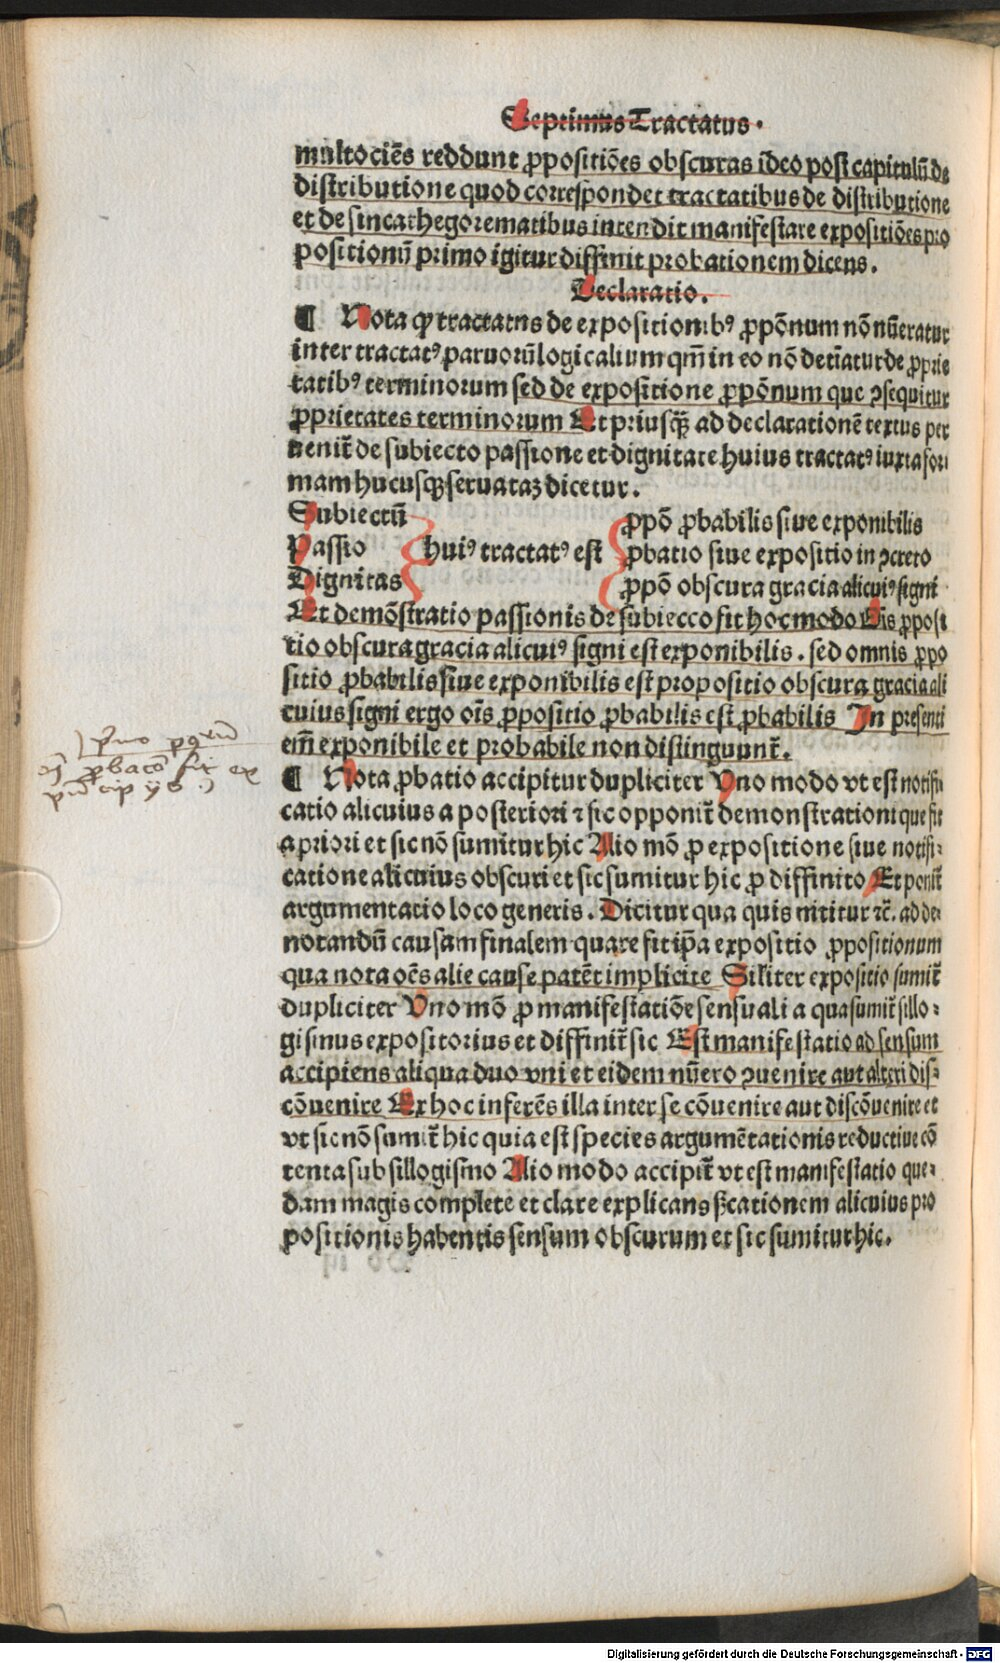 Septimus Tractatus.
multociēs reddunt ꝓpositiōes obscuras ideo post capitulū de
distributione quod correspondet tractatibus de distributione
et de sincathegorematibus intendit manifestare expositiōes pro
positionū primo igitur diffinit probationem dicens.
Declaratio.
¶ Nota ꝙ tractatus de expositionibꝰ ꝓpōnum nō nūeratur
inter tractatꝰ paruorū logicalium qm̄ in eo nō determiatur de ꝓprie
tatibꝰ terminorum sed de expositione ꝓpōnum que ꝯsequitur
ꝓprietates terminorum Et priusqꝫ ad declarationē textus per
uenit̄ de subiecto passione et dignitate huius tractatꝰ iuxta for
mam hucusqꝫ seruataꝫ dicetur.
Subiectū
Passio
Dignitas
huiꝰ tractatꝰ est
ꝓpō ꝓbabilis siue exponibilis
ꝓbatio siue expositio in ꝯcreto
ꝓpō obscura gracia alicuiꝰ signi
Et demōstratio passionis de subiecco fit hoc modo Oīs ꝓposi
tio obscura gracia alicuiꝰ signi est exponibilis. sed omnis ꝓpo
sitio ꝓbabilis siue exponibilis est propositio obscura gracia ali
cuius signi ergo oīs ꝓpositio ꝓbabilis est ꝓbabilis In presenti
em̄ exponibile et probabile non distinguunt̄.
¶ Nota ꝓbatio accipitur dupliciter Uno modo vt est notifi
catio alicuius a posteriori ⁊ sic opponit̄ demonstrationi que fit
a priori et sic nō sumitur hic Alio mō ꝓ expositione siue notifi:
catione alicuius obscuri et sic sumitur hic ꝓ diffinito Et ponit̄
argumentatio loco generis. Dicitur qua quis nititur ⁊c̄. ad de:
notandū causam finalem quare fit ip̄a expositio ꝓpositionum
qua nota oēs alie cause patēt implicite Sil̄iter expositio sumit̄
dupliciter Uno mō ꝓ manifestatiōe sensuali a qua sumit̄ sillo:
gismus expositorius et diffinit̄ sic Est manifestatio ad sensum
accipiens aliqua duo vni et eidem nūero ꝯuenire aut alteri dis:
cōuenire Ex hoc inferēs illa inter se cōuenire aut discōuenire et
vt sic nō sumit̄ hic quia est species argumētationis reductiue cō
tenta sub sillogismo Alio modo accipit̄ vt est manifestatio que:
dam magis complete et clare explicans sꝰcationem alicuius pro
positionis habentis sensum obscurum et sic sumitur hic.